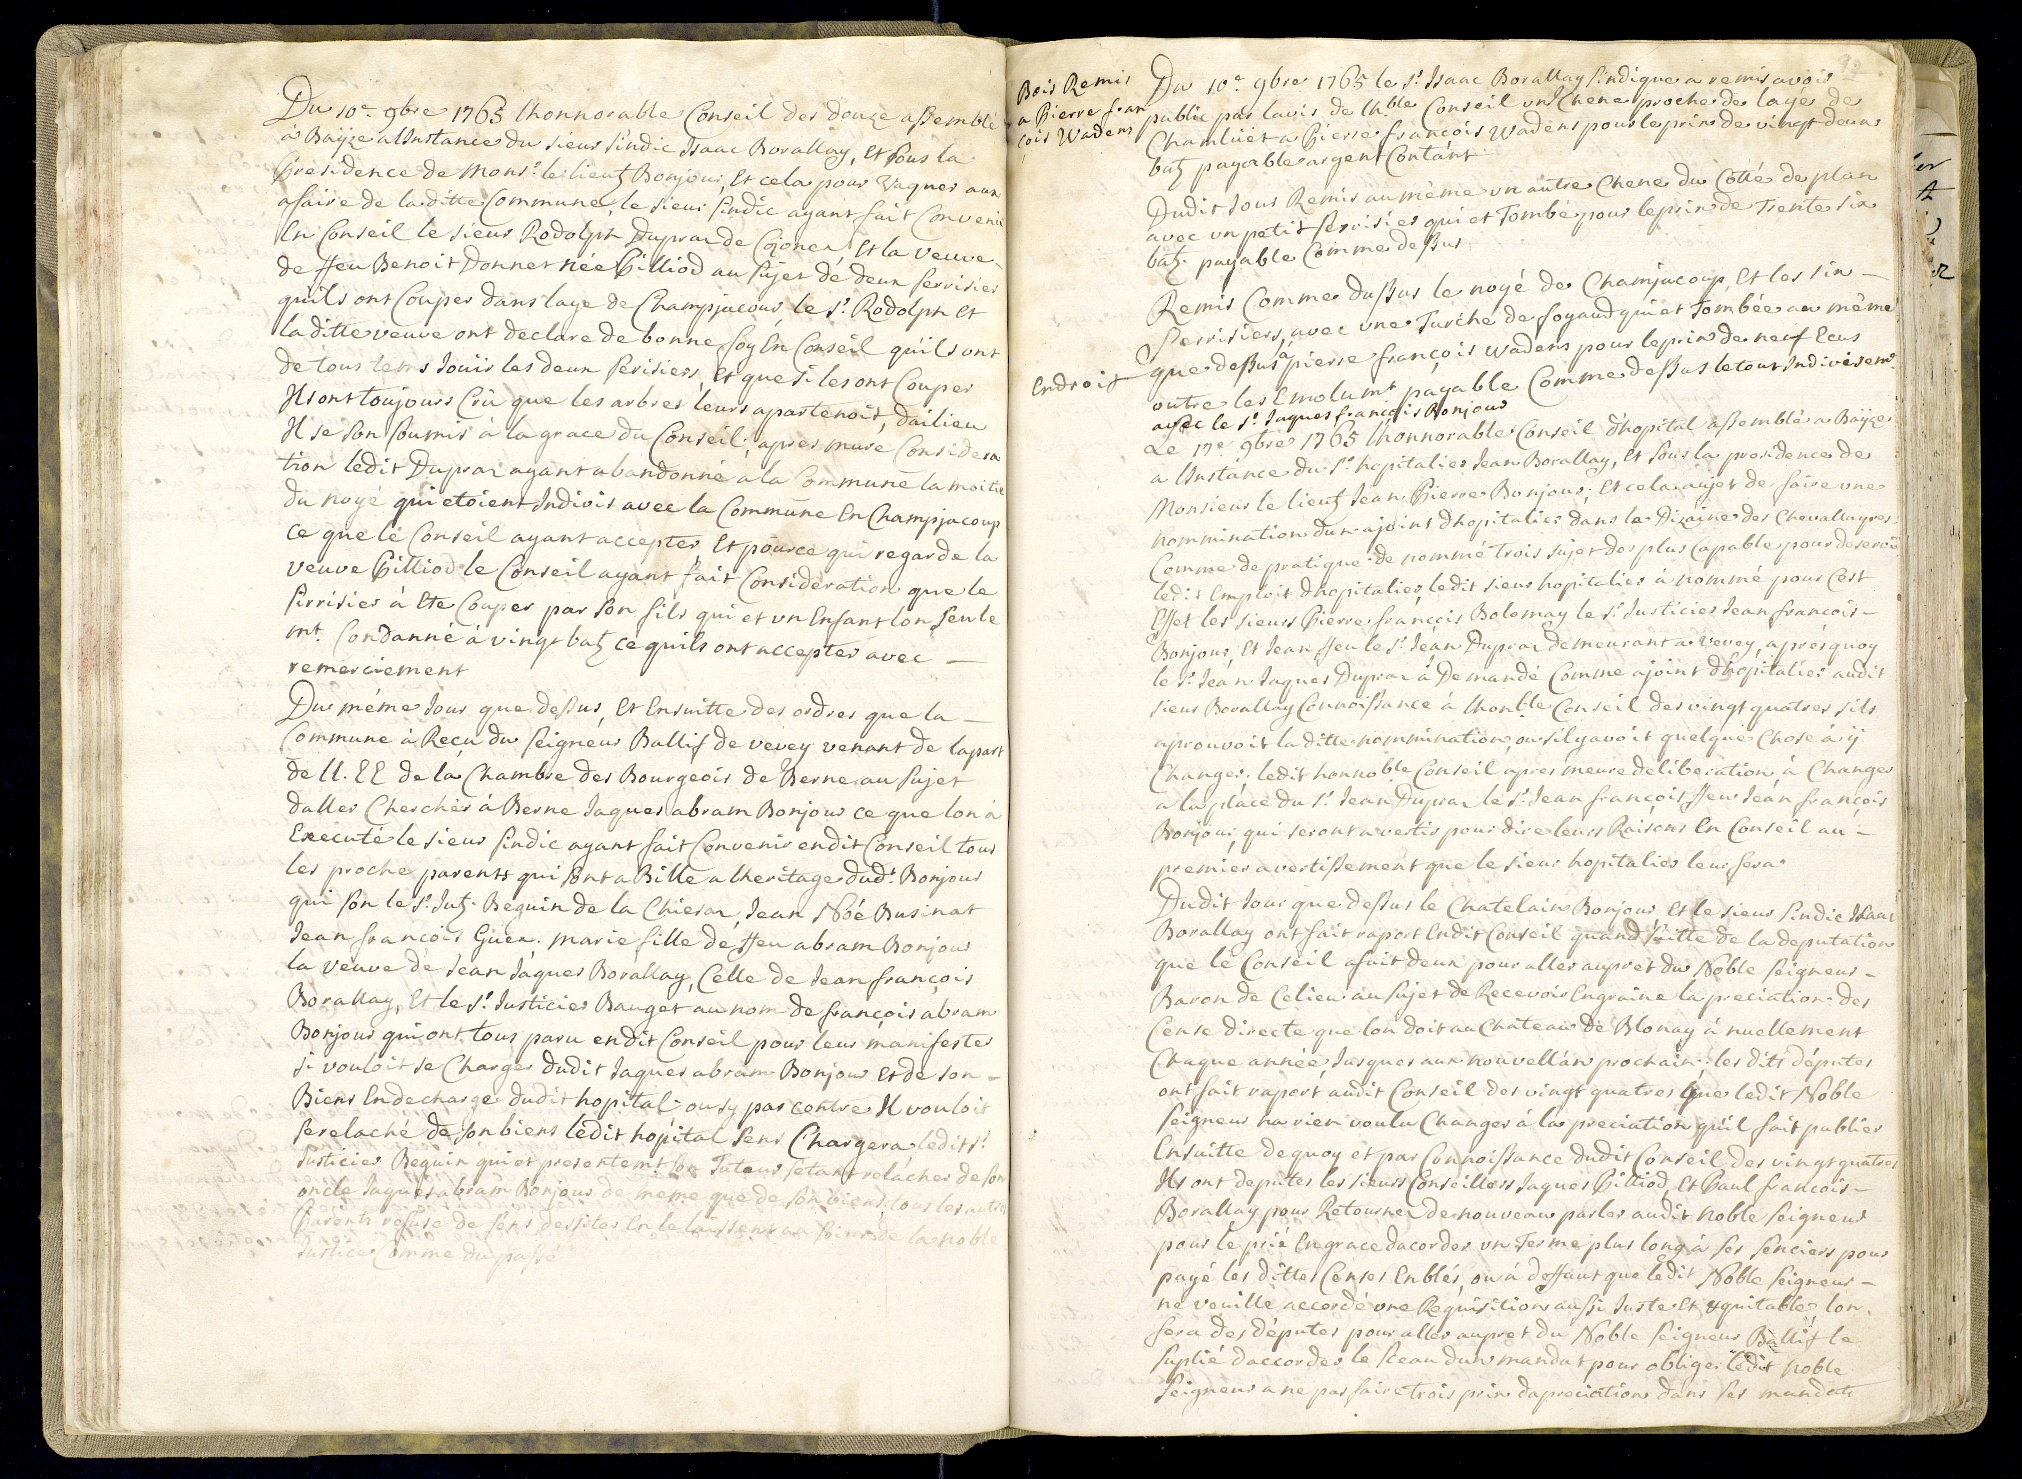 Du 10.e 9bre 1765 lhonnorable Conseil des douze assemblé
à Baÿze a linstance du siéur sindic Isaac Borallay, Et sous la
Presidence de Mons.r le lieut.z Bonjour, Et cela pour vaquer aux
afaire de la ditte Commune, le sieur sindic ayant fait Convenir
En Conseil le siéur Rodolph Dupraz de Cojonex, Et la veuve
de ffeu Benoit Donnet née Gilliod au sujet dé deux serisier
quils ont Couper dans laye de Champjacous, le S.r Rodolph Et
la ditte veuve ont declare de bonne foy En Conseil quils ont
de tous tems Jouir les deux serisiers, Et que si les ont Couper
Ils ont toujours Crû que les arbres leurs apartenoit, dailieu
Il se son soumis à la grace du Conseil, apres mure Considera
tion ledit Dupraz ayant abandonné a la Commune la moitié
du noyé qui etoient Indivis avec la Commune En Champjacoup
ce que lé Conseil ayant accepter, Et pource qui regarde la
veuve Gilliod le Conseil ayant fait Consideration que le
serrisier à Ete Couper par son fils qui et un Enfant lon seule
mt. Condanné à vingt batz ce quils ont accepter avec —
remerciement
Du méme Jour que dessus, Et Ensuitte des ordres que la —
Commune à Reçu du seigneur Ballif de vevey venant de la part
de LL.EE de la Chambre des Bourgeois de Berne au sujet
daller Chercher à Berne Jaques abram Bonjour ce que lon à
Executé le sieur sindic ayant fait Convenir endit Conseil tous
les proche parents qui sont a Bille a lheritage dud.t Bonjour
qui son le S.r Jutz. Beguin de la Chiesaz, Jean Noé Businat
Jean françois Guex. marie fille dé ffeu abram Bonjour
la veuve de Jean Jaques Borallay, Celle de Jean françois
Borallay, Et le S.r Justicier Bauget au nom de françois abram
Bonjour qui ont tous paru endit Conseil pour leur manifester
si vouloit se Charger dudit Jaques abram Bonjour Et de son —
Biens Endecharge dudit hopital ou sy par contre Il vouloit
serelaché de son biens ledit hopital sens Chargera, ledit S.r
Justicier Beguin qui et presentem.t son Tuteur sétant relacher de son
oncle Jaques abram Bonjour de meme que de son biens, tous les autres
Parents refuse de sens dessiter En le laissent au soins de la noble
Justice Comme du passé
92
Bois Remis
a Pierre fran
çois Wadens
Du 10.e 9bre 1765 le S.r Isaac Borallay sindique a remis avois
public par lavis de lh.ble Conseil un Chene proche de layé de
Chamlüet a Pierre françois Wadens pour le prix de vingt deux
batz payable argent Contánt
Dudit Jour Remis au même un autre Chene du Cotté de plan
avec un petit serrisier qui et Tombé pour le prix de Trente six
batz. payable Comme dessus
Remis Comme dessus le noyé de Chamjacoup, Et les six —
serrisiers, avec une Turche de foyaud qui et tombée au même
que dessus à pierre françois Wadens pour le prix de neuf Ecus
Endroit
outre les Emolum.t payable Comme dessus le tout Indivisem.t
avec le S.r Jaques françois Bonjour
Le 17.e 9bre 1765 lhonnorable Conseil dhopital assemblé a Baÿze
a linstance du S.r hopitalier Jean Borallay, Et sous la presidence de
Monsieur le lieutz Jean Pierre Bonjour, Et cela aujet de faire une
nommination dun ajoint dhopitalier dans la Dizaine des Chevallayres
Comme de pratique de nommé trois sujet des plus Capable pour deservir
ledit Emploit dhopitalier, ledit sieur hopitalier à nommé pour Cest
Effet les sieurs Pierre françois Bolomay le S.r Justicier Jean francois —
Bonjour, Et Jean ffeu le S.r Jean Dupraz demeurant a Vevey, aprés quoy
le S.r Jean Jaques Dupraz à Demandé Comme ajoint dhopitalier audit
sieur Borallay Connoissance à lhonble Conseil des vingt quatres sils
aprouvoit la ditte nommination, ou sil yavoit quelque Chose à ÿ
Changer, ledit honnoble Conseil apres meure deliberation à Changer
a la place du S.r Jean Dupraz le S.r Jean françois ffeu Jean françois
Bonjour, qui seront avertis pour dire leurs Raisons En Conseil au —
premier avertissement que le sieur hopitalier leur fera
Dudit Jour que dessus le Chatelain Bonjour, Et le sieur sindic Isaac
Borallay ont fait raport Endit Conseil quand suitte de la deputation
que le Conseil a fait deux pour aller aupret du Noble seigneur —
Baron de Celieu au sujet de Recevoir Engraine la preciation des
Cense directe que lon doit au Chateau de Blonay ànuellement
Chaque année, Jusques aux nouvellán prochain, les dits députer
ont fait raport audit Conseil des vingt quatres que ledit Noble
seigneur na rien voulu Changer à la preciation quil fait publier
Ensuitte dequoy et par Connoissance dudit Conseil des vingt quatres
Ils ont deputer les sieurs Conseillers Jaques Gilliod, Et Paul francois —
Borallay pour Retourner de nouveau parler audit noble seigneur
pour le prié En grace dacorder un Terme plus long à ses senciers pour
payé les dittes Censes Enblés, ou à deffaut que lédit Noble seigneur —
ne veuille accordé une Requisition aussi Juste Et équitable, lon
fera des députer pour aller aupret du Noble seigneur Ballif le
suplié daccorder le sceau dun mandat pour obliger lédit noble
seigneur a ne pas faire trois prix dapreciation dans ses mandats